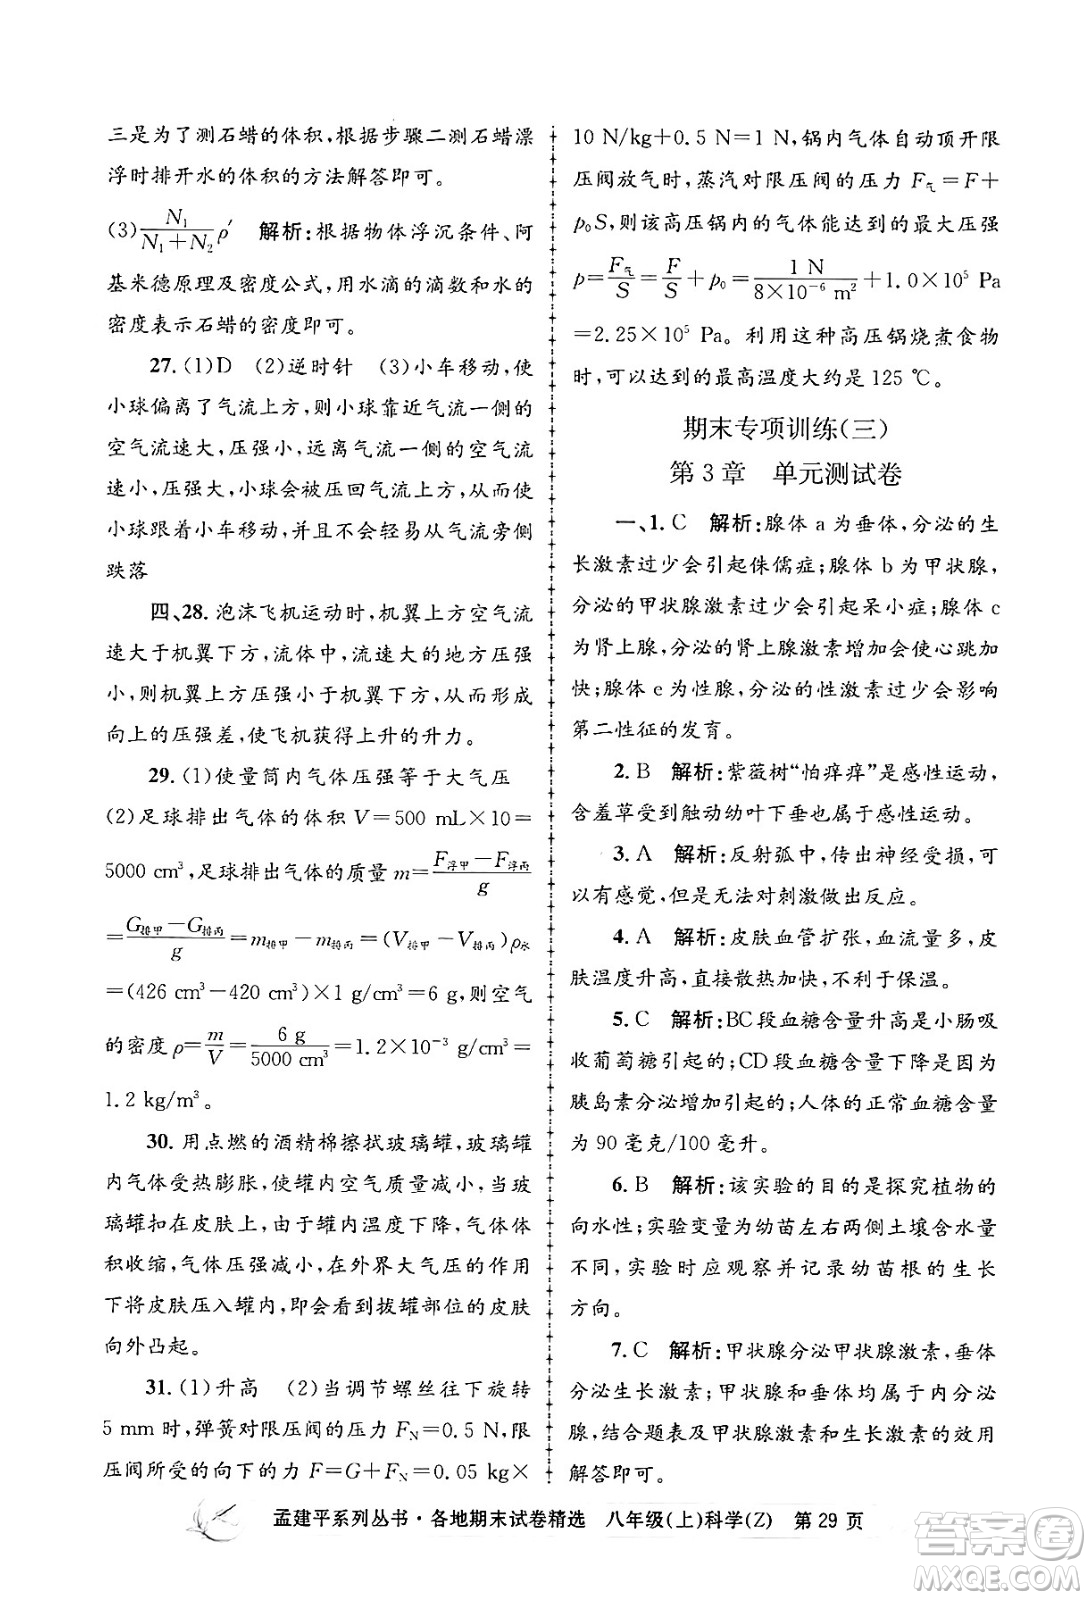 三是为了测石蜡的体积，根据步骤二测石蜡漂
浮时排开水的体积的方法解答即可。
(3) N₁/(N₁+N₂) ρ′ 解析：根据物体浮沉条件、阿
基米德原理及密度公式，用水滴的滴数和水的
密度表示石蜡的密度即可。
27. (1)D (2)逆时针 (3)小车移动，使
小球偏离了气流上方，则小球靠近气流一侧的
空气流速大，压强小，远离气流一侧的空气流
速小，压强大，小球会被压回气流上方，所以
小球跟着小车移动，并且不会轻易从气流旁侧
跌落
四、28. 泡沫飞机运动时，机翼上方空气流
速大于机翼下方，流体中，流速大的地方压强
小，则机翼上方压强小于机翼下方，形成
向上的压强差，使飞机获得上升的升力。
29. (1)使量筒内气体压强等于大气压
(2)足球排出气体的体积 V=500 mL×10=
5000 cm³，足球排出气体的质量 m=(F浮甲−F浮丙)/g
=(G排甲−G排丙)/g=m排甲−m排丙=(V排甲−V排丙)ρ水
=(426 cm³−420 cm³)×1 g/cm³=6 g，则空气
的密度 ρ=m/V=6 g/5000 cm³=1.2×10⁻³ g/cm³=
1.2 kg/m³。
30. 用点燃的酒精棉擦拭玻璃罐，玻璃罐
内气体受热膨胀，使罐内空气质量减小，当玻
璃罐罐在皮肤上，由于罐内温度下降，气体体
积收缩，气体压强减小，在外界大气压的作用
下将皮肤压入罐内，即会看到拔罐部位的皮肤
向外凸起。
31. (1)升高 (2)当调节螺丝往下旋转
5 mm时，弹簧对限压阀的压力 F_N=0.5 N，限
压阀所受的向下的力 F=G+F_N=0.05 kg×
10 N/kg+0.5 N=1 N，锅内气体自动顶开限
压阀放气时，蒸汽对限压阀的压力 F气=F+
p₀S，则该高压锅内的气体能达到的最大压强
p=F气/S=F/S+p₀=1 N/(8×10⁻⁶ m²)+1.0×10⁵ Pa
=2.25×10⁵ Pa。利用这种高压锅烧煮食物
时，可以达到的最高温度大约是125 ℃。
期末专项训练(三)
第3章 单元测试卷
一、1. C 解析：腺体a为垂体，分泌的生
长激素过少会引起侏儒症；腺体b为甲状腺，
分泌的甲状腺激素过少会引起呆小症；腺体c
为肾上腺，分泌的肾上腺激素增加会使心跳加
快；腺体e为性腺，分泌的性激素过少会影响
第二性征的发育。
2. B 解析：紫薇树“怕痒痒”是感性运动，
含羞草受到触动幼叶下垂也属于感性运动。
3. A 解析：反射弧中，传出神经受损，可
以有感觉，但是无法对刺激做出反应。
4. A 解析：皮肤血管扩张，血流量多，皮
肤温度升高，直接散热加快，不利于保温。
5. C 解析：BC段血糖含量升高是小肠吸
收葡萄糖引起的；CD段血糖含量下降是因为
胰岛素分泌增加引起的；人体的正常血糖含量
为90毫克/100毫升。
6. B 解析：该实验的目的是探究植物的
向水性；实验变量为幼苗左右两侧土壤含水量
不同，实验时应观察并记录幼苗根的生长
方向。
7. C 解析：甲状腺分泌甲状腺激素，垂体
分泌生长激素；甲状腺和垂体都属于内分泌
腺，结合图表及甲状腺激素和生长激素的效用
解答即可。
孟建平系列丛书·各地期末试卷精选 八年级(上)科学(Z) 第29页
答案圈
MXQE.COM